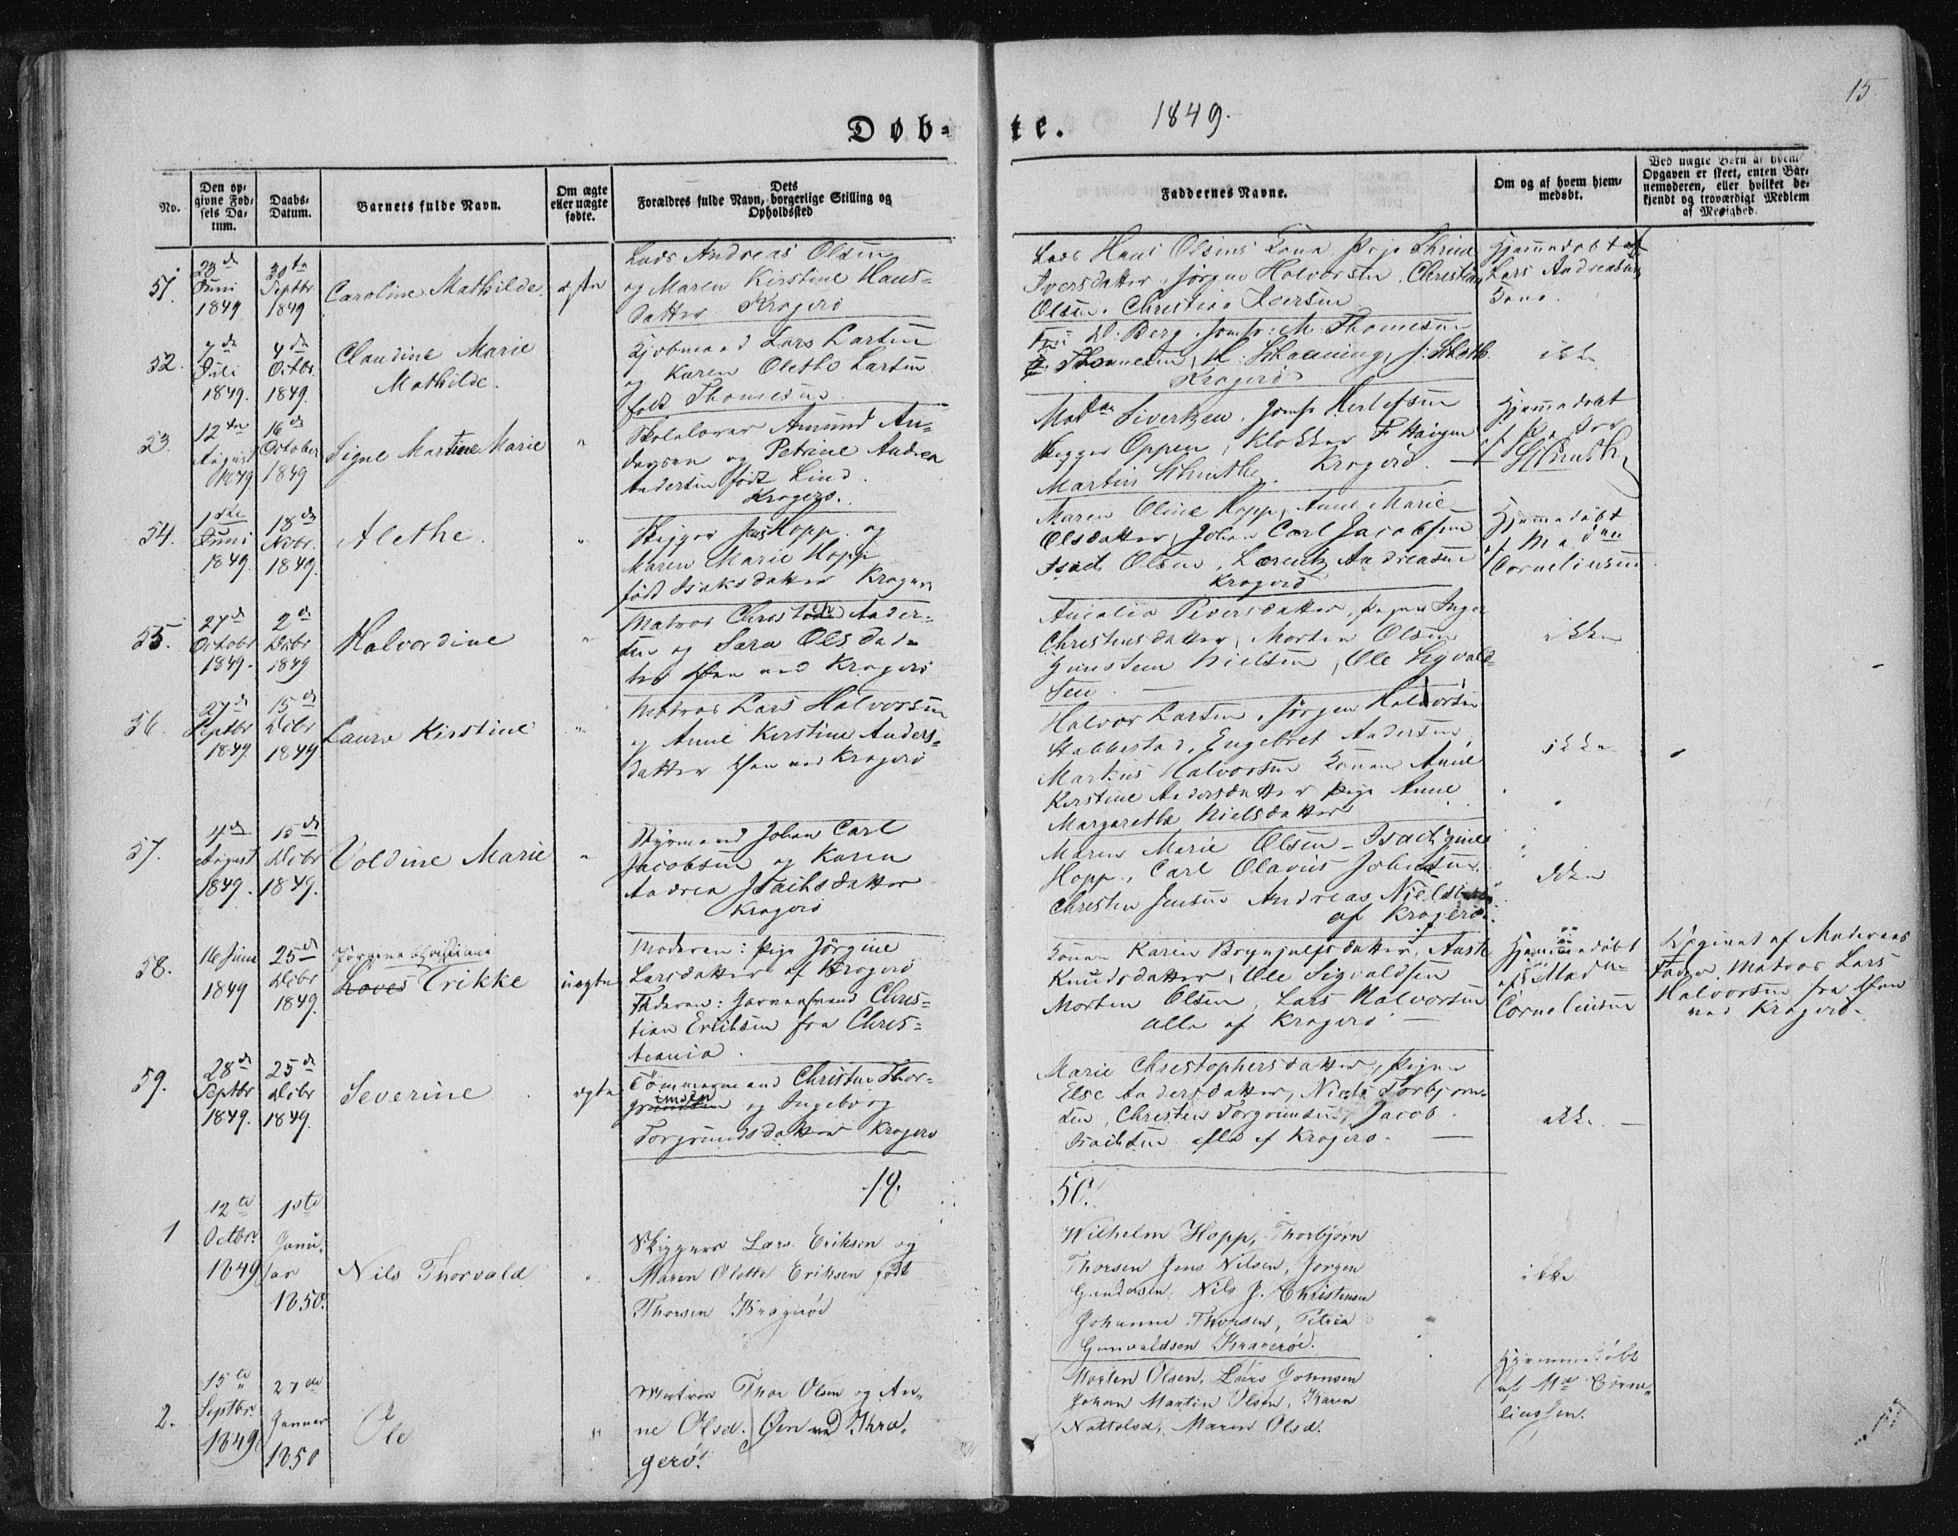 15
Døb-
te.
1849.
No.
Den op-
givne Fød-
sels Da-
tum.
Daabs-
Datum.
Barnets fulde Navn.
Om ægte
eller uægte
fødte.
Dets
Forældres fulde Navn, borgerlige Stilling og
Opholdssted
Faddernes Navne.
Om og af hvem hjem-
medøbt.
Ved uægte Børn af hvem
Opgaven er skeet, enten Bar-
nemoderen, eller hvilket be-
kjendt og troværdigt Medlem
af Menighed.
51.
23de
Juni
1849
30te
Septbr
1849
Caroline Mathilde.
ægte
Lods Andreas Olsen
og Maren Kirstine Hans-
datter Kragerö
Lods Hans Olsens Kone Pige Thrine
Iversdatter, Jørgen Halvorsen, Christian
Olsen, Christian Iversen
Hjemmedøbt af
Lars Andreasens
Kone.
52.
7de
Juli
1849.
4de
Octbr
1849.
Claudine Marie
Mathilde.
Kjøbmand Lars Larsen
og Karen Olethe Larsen
født Thomesen
Fru D. Berg, Jomfr: M. Thomesen
Thomesen,
Kragerö
ikke
53.
12te
August
1849
16de
October
1849
Signe Martine Marie
"
Skolelærer Amund An-
dersen og Petrine Andrea
Andersen født Lind.
Kragerö.
Madm Sivertsen, Jomfr Herlofsen
Skipper Oppen, Klokker F. Heigren
Martin Schmithe. Kragerö. —
Hjemmedøbt
54.
1ste
Juni
1849.
18de
Nvbr.
1849.
Alethe.
"
Skipper Jens Hopp. og
Maren Marie Hopp
født Isaksdatter Kragerö
Maren Oline Hopp, Anne Marie
Olsdatter, Johan Carl Jacobsen
Isach Olsen, Lorentz Andreasen
Kragerö
Hjemmedøbt
af Madme
Corneliusen
55.
27de
Octobr
1849.
2de
Decbr
1849
Halvordine
"
Matros Christoffer Ander-
sen og Sara Olsdat-
ter Øen ved Kragerö
Amalia Siversdatter, Pigen Inger
Christensdatter, Morten Olsen
Gunstein Nielsen, Ole Sigvald-
sen. —
ikke
56.
27de
Septbr
1849.
15de
Decbr
1849
Laura Kirstine
"
Matros Lars Halvorsen
og Anne Kirstine Anders-
datter Øen ved Kragerö
Halvor Larsen, Jørgen Halvorsen
Stabbestad, Engebret Andersen,
Markus Halvorsen Konen Anne
Kirstine Andersdatter Pige Anne
Margarethe Nielsdatter
ikke
57.
4de
August
1849.
15de
Decbr
1849.
Voldine Marie
"
Styrmand Johan Carl
Jacobsen og Karen
Andrea Isachsdatter
Kragerö
Maren Marie Olsen — Isachine
Hopp., Carl Olavus Johnsen
Christen Jensen Andreas Nielsen
af Kragerö.
ikke
58.
16 Juni
1849
25de
Decbr
1849.
Jörgine Christiane
Lovis Erikke
uægte
Moderen: Pige Jörgine
Larsdatter af Kragerö
Faderen: Garversvend Chris-
tian Eriksen fra Chris-
tiania.
Konen Karen Brynjulfsdatter, Aaste
Knudsdatter, Ole Sigvaldsen
Morten Olsen, Lars Halvorsen
alle af Kragerö —
Hjemmedøbt
af Madme
Corneliusen
Opgivet af Moderens
Fader, Matros Lars
Halvorsen fra Øen
ved Kragerö.
59.
28de
Septbr
1849.
25de
Decbr
1849.
Severine
ægte
Tömmermand Christen Thor-
grimsen og Ingeborg
Torgrimsdatter Kragerö
Marie Christophersdatter, Pigen
Else Andersdatter, Niels Torbjorn-
sen, Christen Torgrimsen, Jacob
Isachsen alle af Kragerö. —
ikke —
18.
50.
1
12te
Octbr.
1849
1ste
Janu-
ar
1850.
Nils Thorvald
"
Skipper Lars Eriksen og
Maren Olette Eriksen født
Thorsen Kragerøe
Wilhelm Hopp, Thorbjørn
Thorsen Jens Nilsen, Jørgen
Gundersen, Nils J. Christensen
Johanne Thorsen, Petrea
Gunvaldsen Kragerøe.
ikke
2.
15te
Septbr.
1849
27de
Januar
1850
Ole
"
Matros Thor Olsen og An-
ne Olsd. Øen ved Kra-
gerö.
Morten Olsen, Lars Johnsen
Johan Martin Olsen, Karen
Nattolsd, Maren Olsd.
Hjemmedøbt
af Md Corne-
liussen.